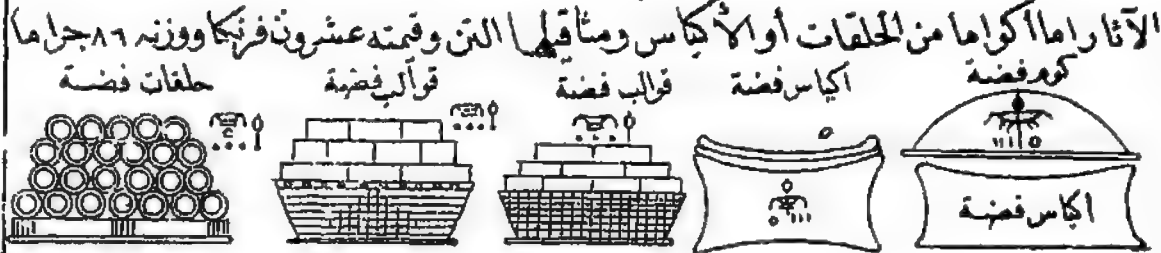 الآثار اما أكواما من الحلقات أو الأكياس ومثاقيلها التن وقيمته عشرون فرنكا ووزنه ٨٦ جراما
كوم فضة
اكياس فضة
قوالب فضة
قوالب فضة
حلقات فضة
اكياس فضة